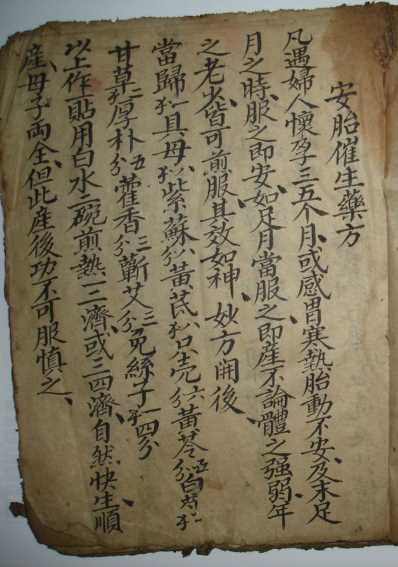 安胎催生藥方
凡遇婦人懷孕三五个月、或感冒寒熱胎動不安、及未足
月之時、服之即安、如足月當服之即産、不論體之強弱、年
之老少、皆可煎服、其效如神、妙方開後、
當歸 貝母 紫蘇 黃芪 只壳六分 黃芩五分 白芍
甘草 厚朴五分 藿香三分 蘄艾三分 兔絲子一 四分
以上作一貼用白水二碗煎熱一二濟、或三四濟、自然快生順
産、母子両全、但此産後切不可服慎之、